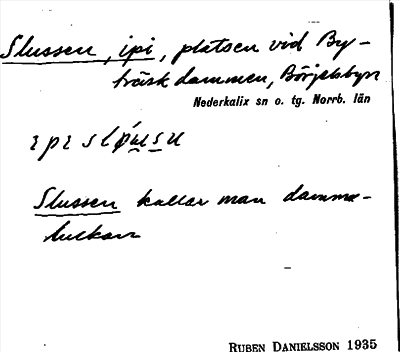 Slussen, ipi, platsen vid By-
träsk dammen, Börjelsbyn
Nederkalix sn o. tg. Norrb. län
Slussen kallar man damm-
luckan
RUBEN DANIELSSON 1935